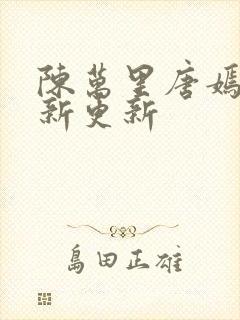 陳萬里唐嫣
新更新
島田正雄